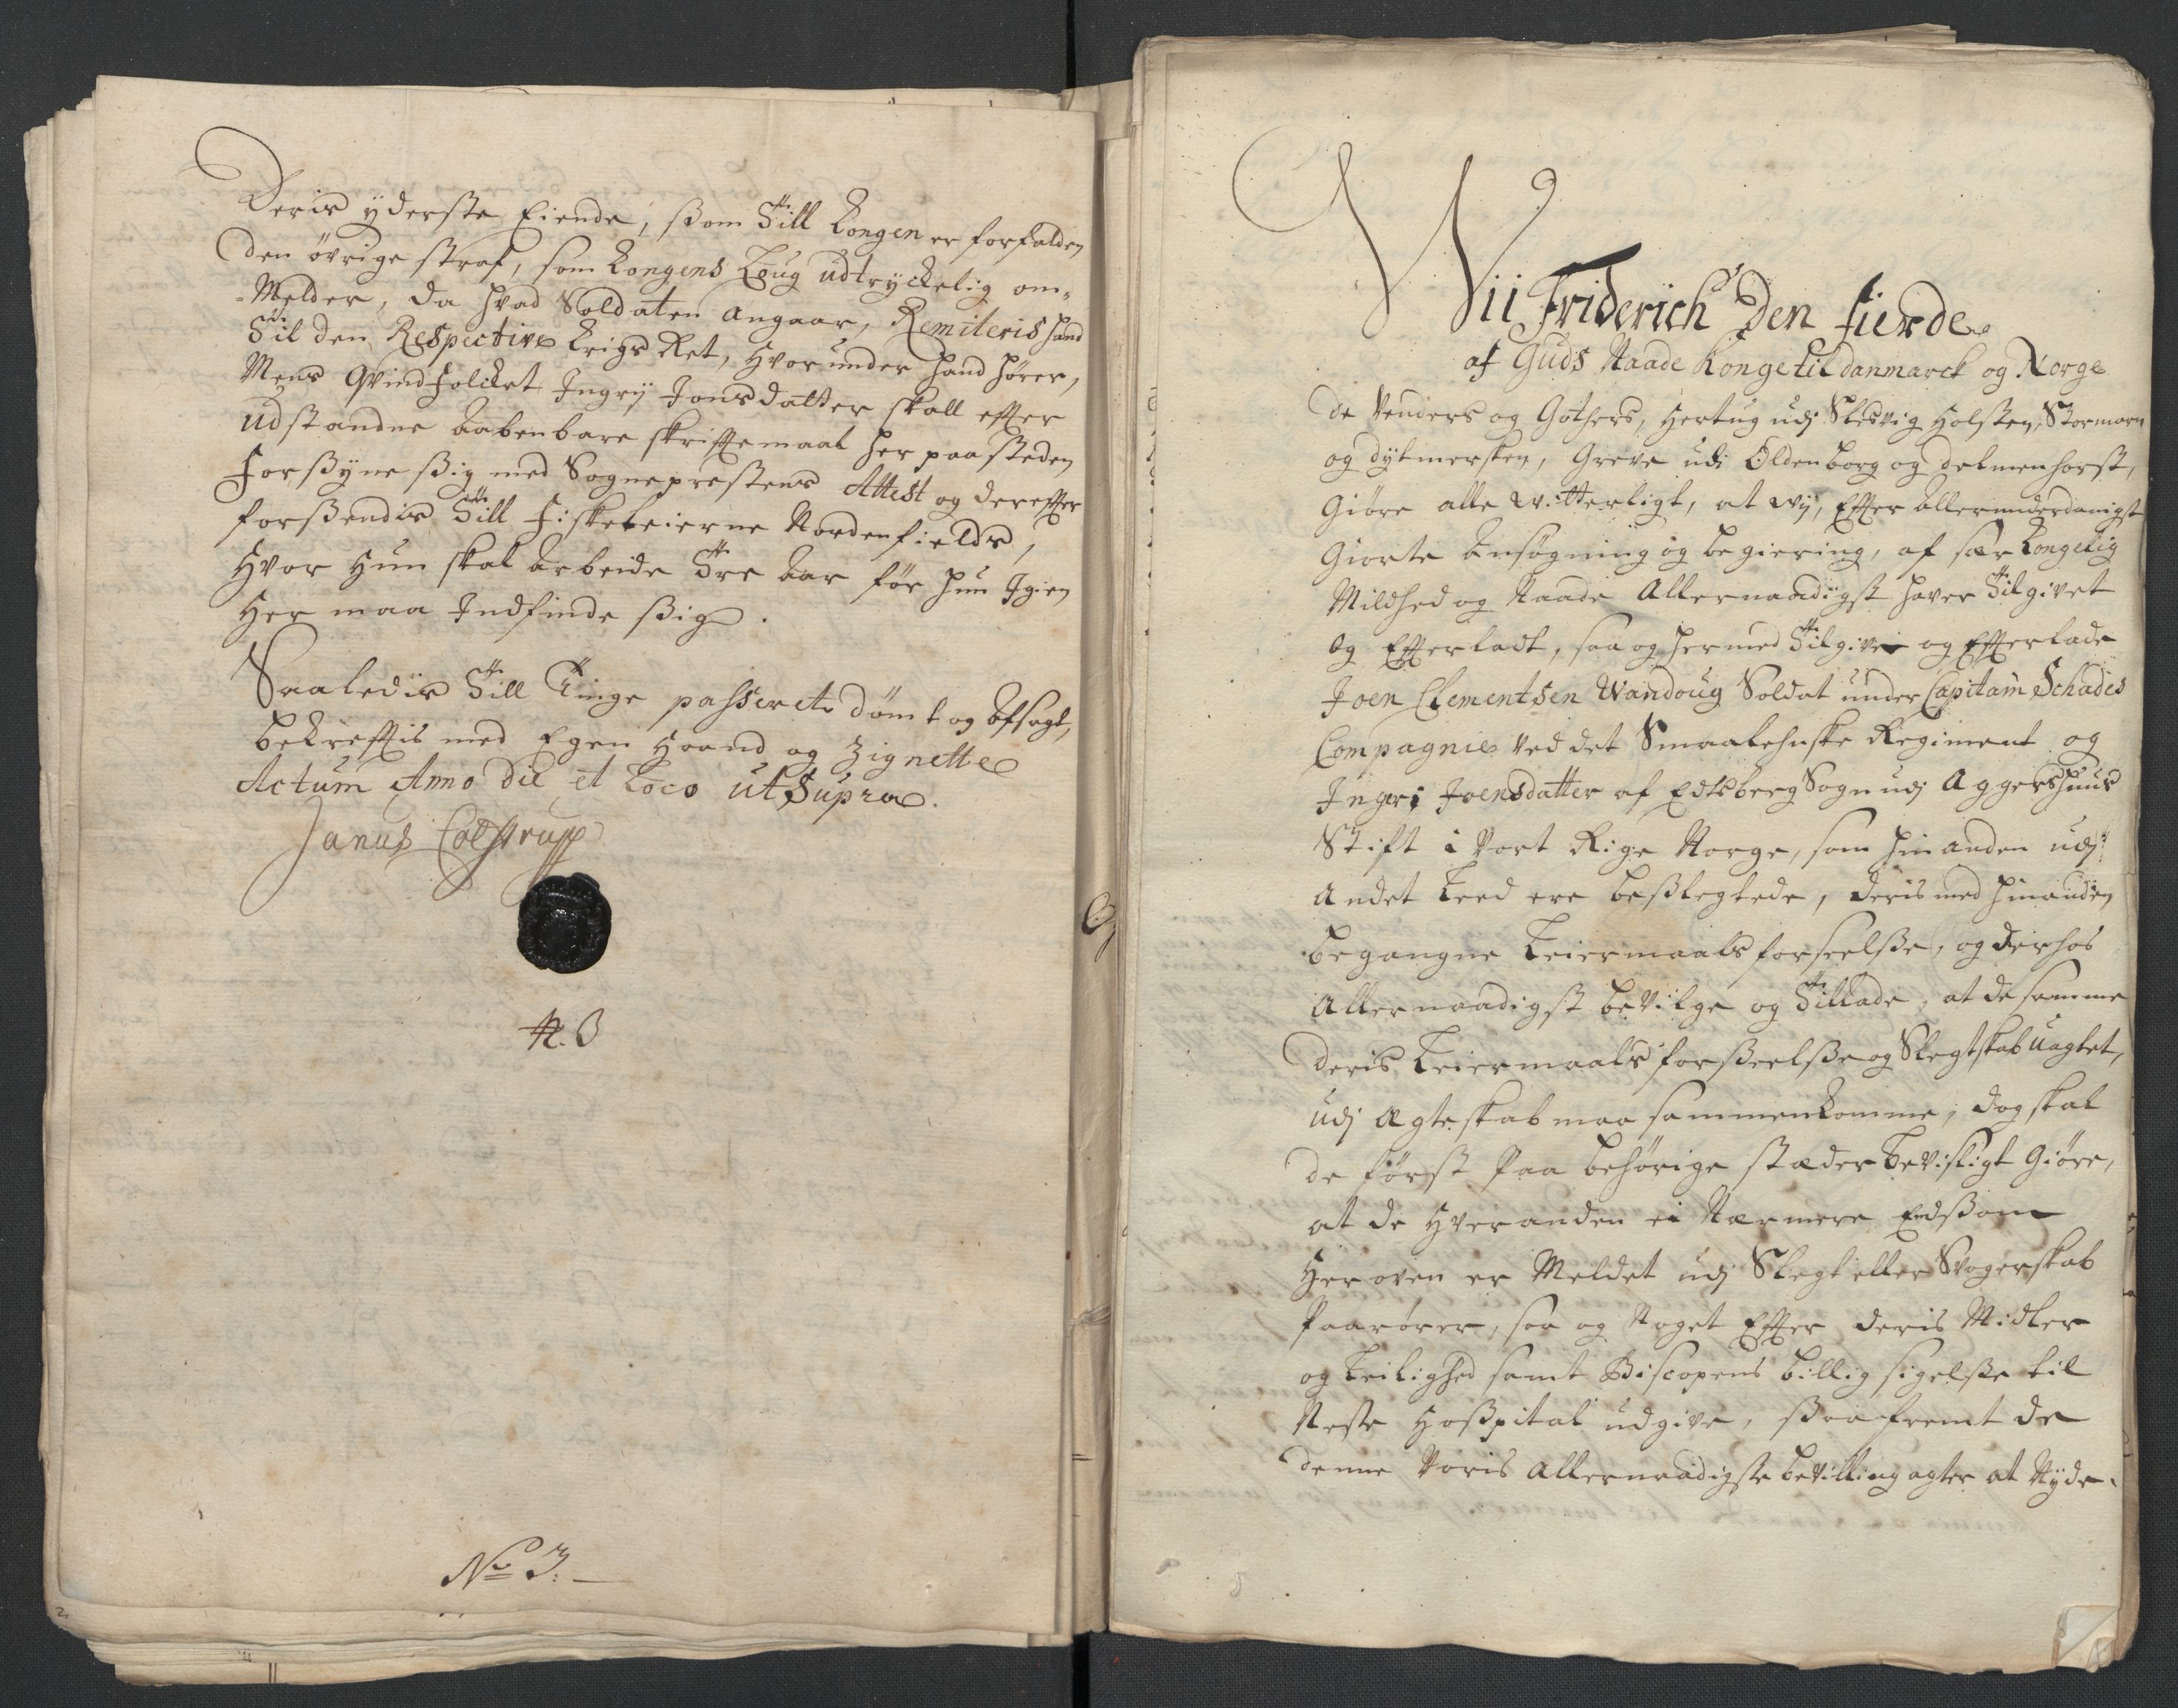 Deris ÿderste Eiende, ßom Till Kongen er forfalden
den øvrige straf, som Kongens Loug udtryckelig om-
-Melder, da hvad Soldaten angaar, Remiteris hand
Til den Respective Krigs Ret, hvorunder hand hører,
Mens Qvindfolcket Ingrÿ Jonsdatter skall effter
udstandne aabenbare skrifftemaal her paa steden
forsÿne ßig med Sogneprestens Attest og dereffter
forßendis Till Fiskeleierne Nordenfields,
Hvor Hun skal Arbeide Tre Aar før hun Igien
Her maa Indfinde ßig.
Saaledis Till Tinge passeret dømt og Afsagt,
bekrefftis med Egen Haand og Zignette
Actum Anno Die et Loco ut Supra.
Janus Colstrupp
N. 3
No 3.
Wii Friderich Den fierde
af Guds Naade Konge til danmarck og Norge
de Venders og Gothers, Hertug udj Slesvig Holsten, Stormarn
og dytmersken, Greve udi Oldenborg og delmenhorst,
Giøre alle witterligt, at wij, Effter allerunderdanigst
Giorte Ansøgning og begiering, af sær Kongelig
Mildhed og Naade Allernaadigst haver Tilgivet
og Effterladt, saa og hermed Tilgive og Effterlade
Joen Clementsen Wandoug Soldat under Capitain Schades
Compagnie ved det Smaalehnske Regiment og
Ingeri Joensdatter af Edtsberg Sogn udj Aggershuus
Stift i Vort Rige Norge, som hinanden udj
andet Leed ere beßlegtede, deris med hinanden
begangne Leiermaals forseelße, og derhos
Allernaadigst bevilge og Tillade, at de samme
deris Leiermaals forßeelße og Slegtskab uagtet,
udj Ægteskab maa sammenkomme, dog skal
de først Paa behørige stæder bevisligt Giøre,
at de Hveranden ei Nærmere Endßom
Her oven er Meldet udj Slegt eller Svogerskab
Paarører, saa og Noget Effter deris Midler
og Leilighed samt Biscopens billig sigelße til
Neste Hoßpital udgive, ßaafremt de
denne Voris Allernaadigste bevilling agter at Nÿde.